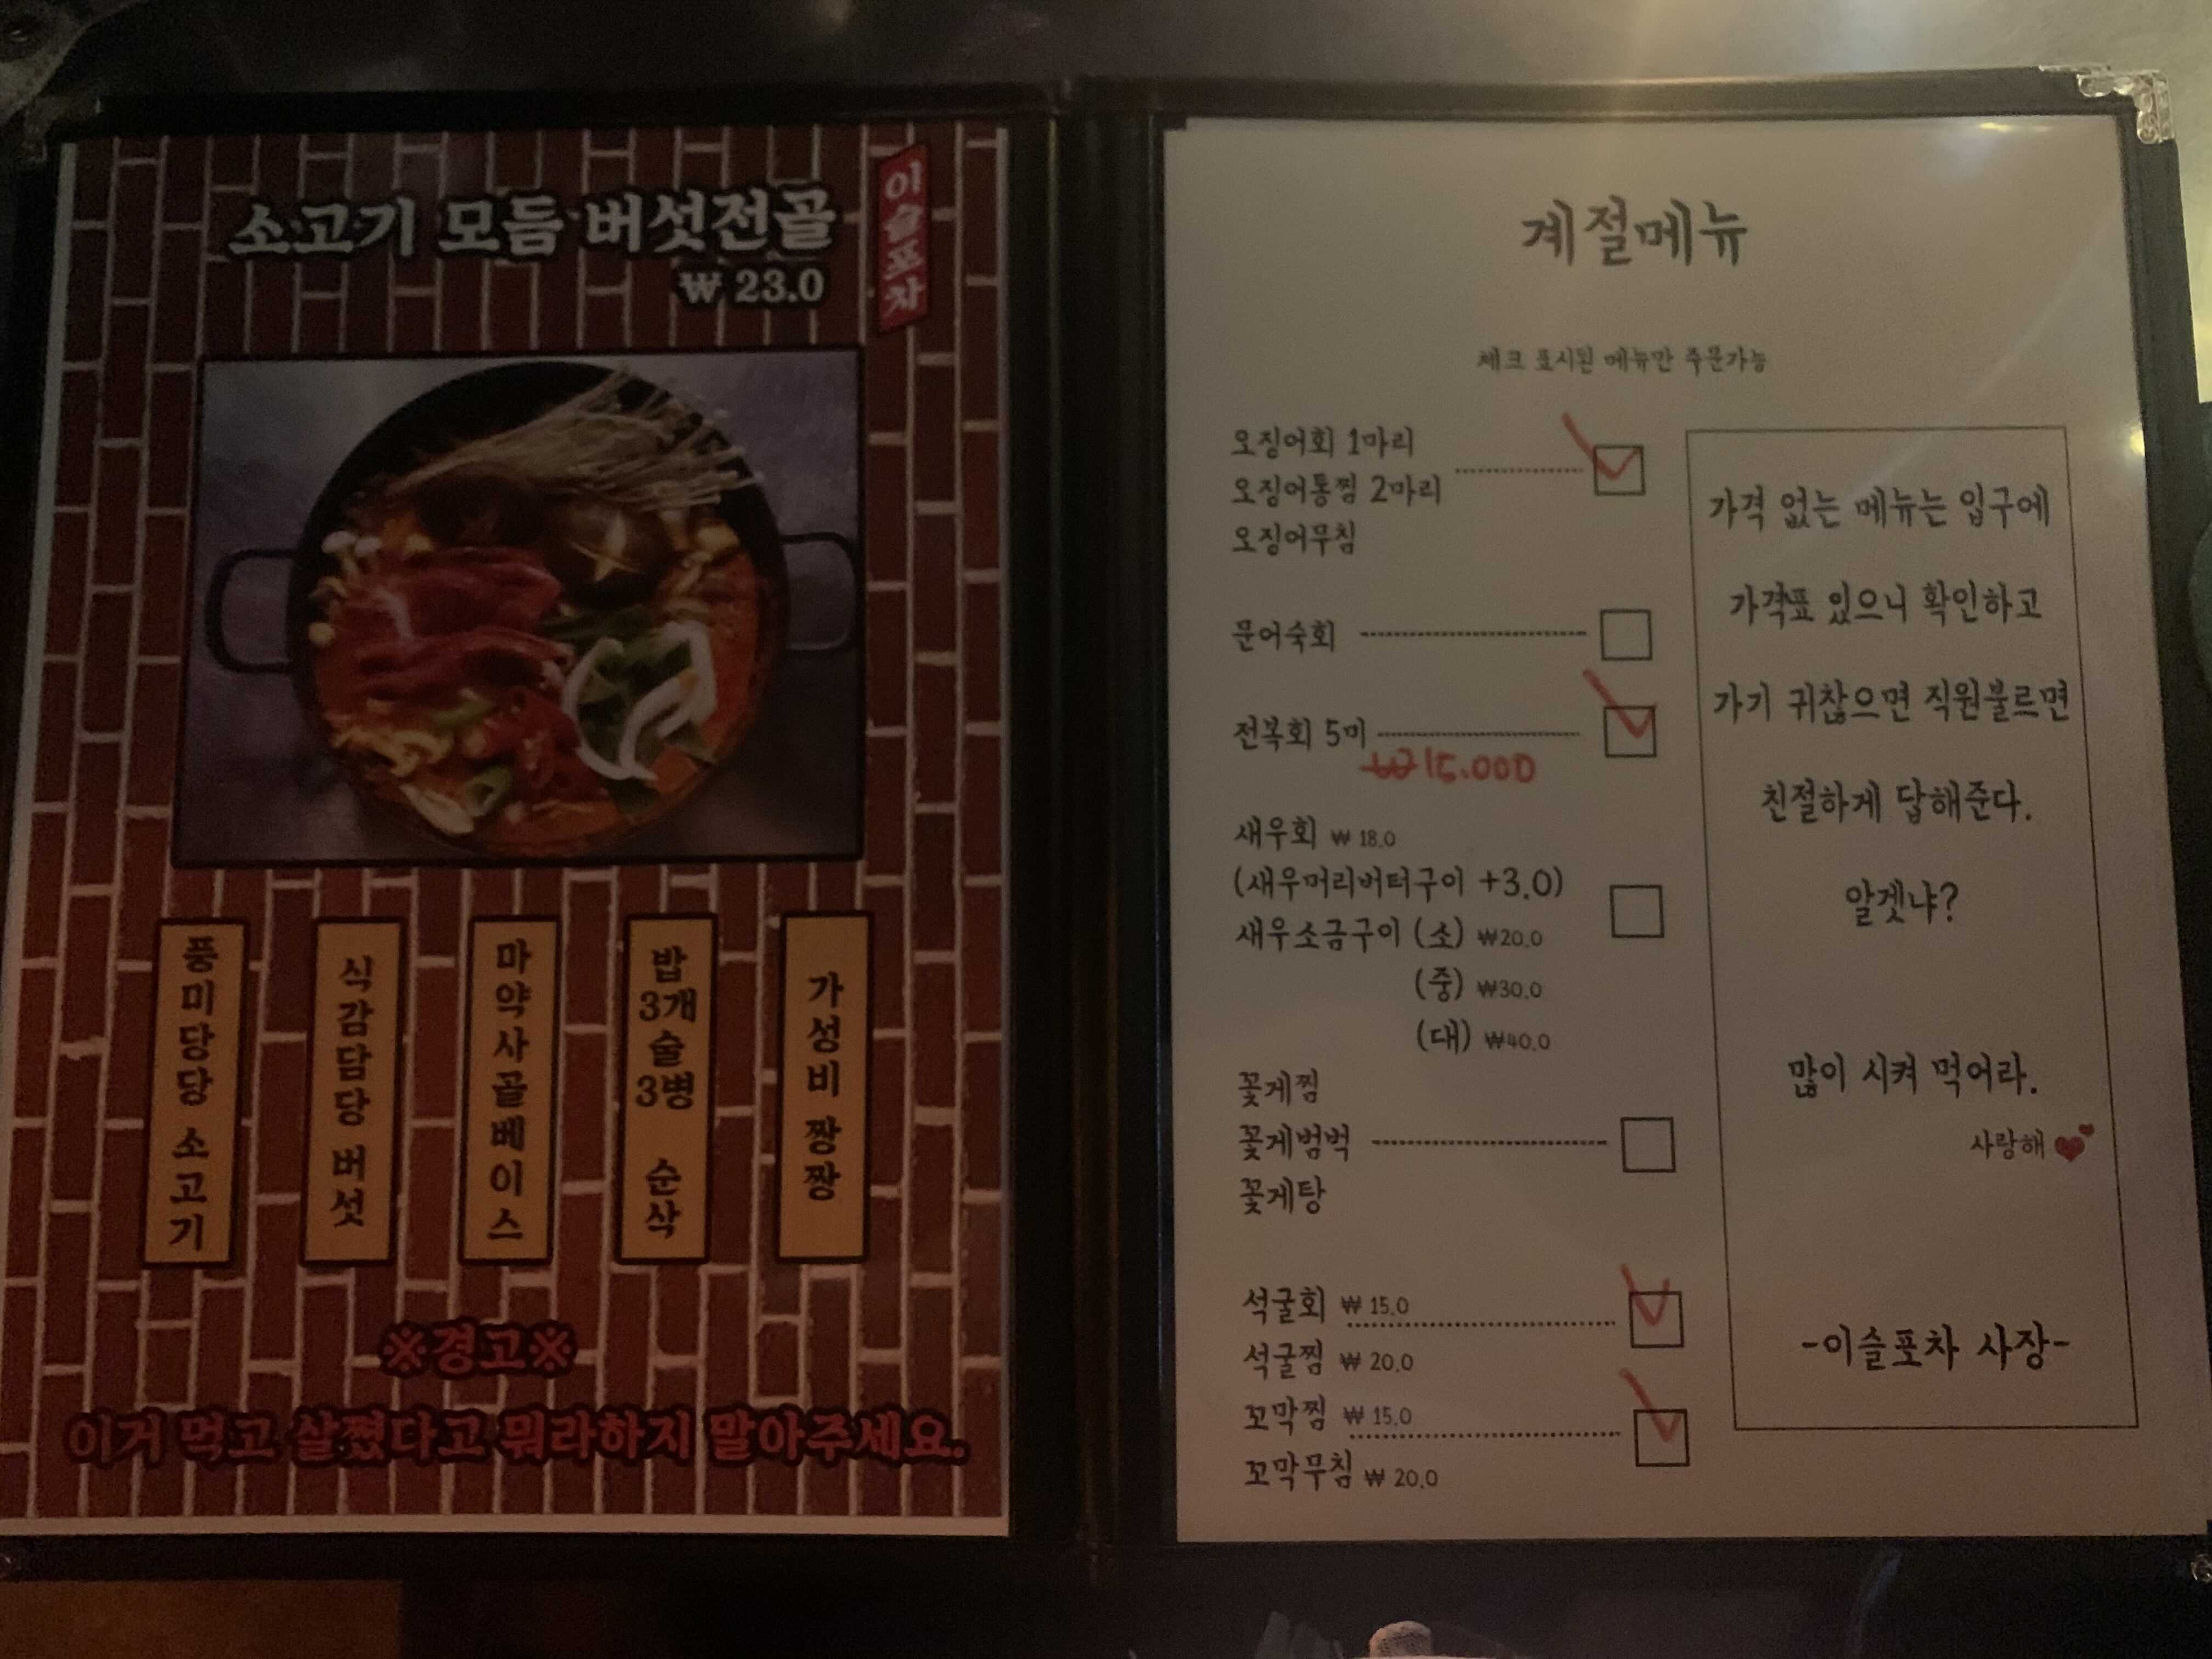 소고기 모듬 버섯전골
₩ 23.0
이슬포차
풍미당당 소고기
식감담당 버섯
마약사골베이스
밥3개술3병 순삭
가성비 짱짱
※경고※
이거 먹고 살쪘다고 뭐라하지 말아주세요.
계절메뉴
체크 표시된 메뉴만 주문가능
오징어회 1마리
오징어통찜 2마리
오징어무침
문어숙회
전복회 5미
₩15.000
새우회 ₩ 18.0
(새우머리버터구이 +3.0)
새우소금구이 (소) ₩20.0
(중) ₩30.0
(대) ₩40.0
꽃게찜
꽃게범벅
꽃게탕
석굴회 ₩ 15.0
석굴찜 ₩ 20.0
꼬막찜 ₩ 15.0
꼬막무침 ₩ 20.0
가격 없는 메뉴는 입구에
가격표 있으니 확인하고
가기 귀찮으면 직원불르면
친절하게 답해준다.
알겟냐?
많이 시켜 먹어라.
사랑해
-이슬포차 사장-